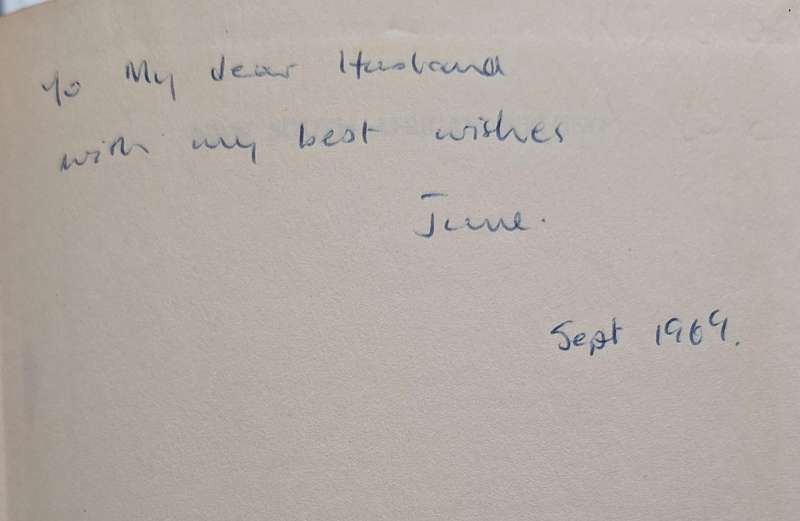 To My dear Husband
with my best wishes
June.
Sept 1969.